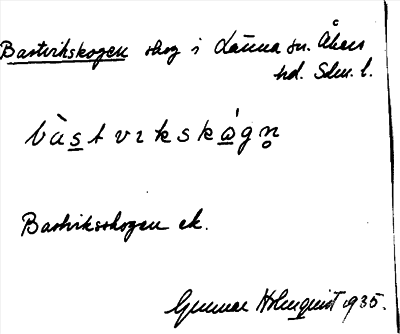 Bastvikskogen skog i Länna sn. Åkers
hd. Sdm. l.
bàstvıkskǻgn̥
Bastviksskogen ek.
Gunnar Holmquist 1935.